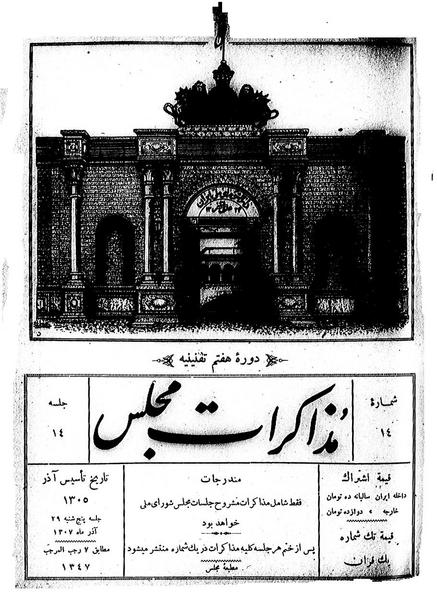 دورهٔ هفتم تقنینیه
شمارهٔ
۱۴
مذاکرات مجلس
جلسه
۱۴
قیمة اشتراك
داخله ایران سالیانه ده تومان
خارجه » دوازده تومان
قیمة تك شماره
یك قران
مندرجات
فقط شامل مذاکرات مشروح جلسات مجلس شورای ملی
خواهد بود
پس از ختم هر جلسه کلیه مذاکرات در یك شماره منتشر میشود
مطبعه مجلس
تاریخ تأسیس آذر
۱۳۰۵
جلسه پنجشنبه ۲۹
آذر ماه ۱۳۰۷
مطابق ۷ رجب المرجب
۱۳۴۷